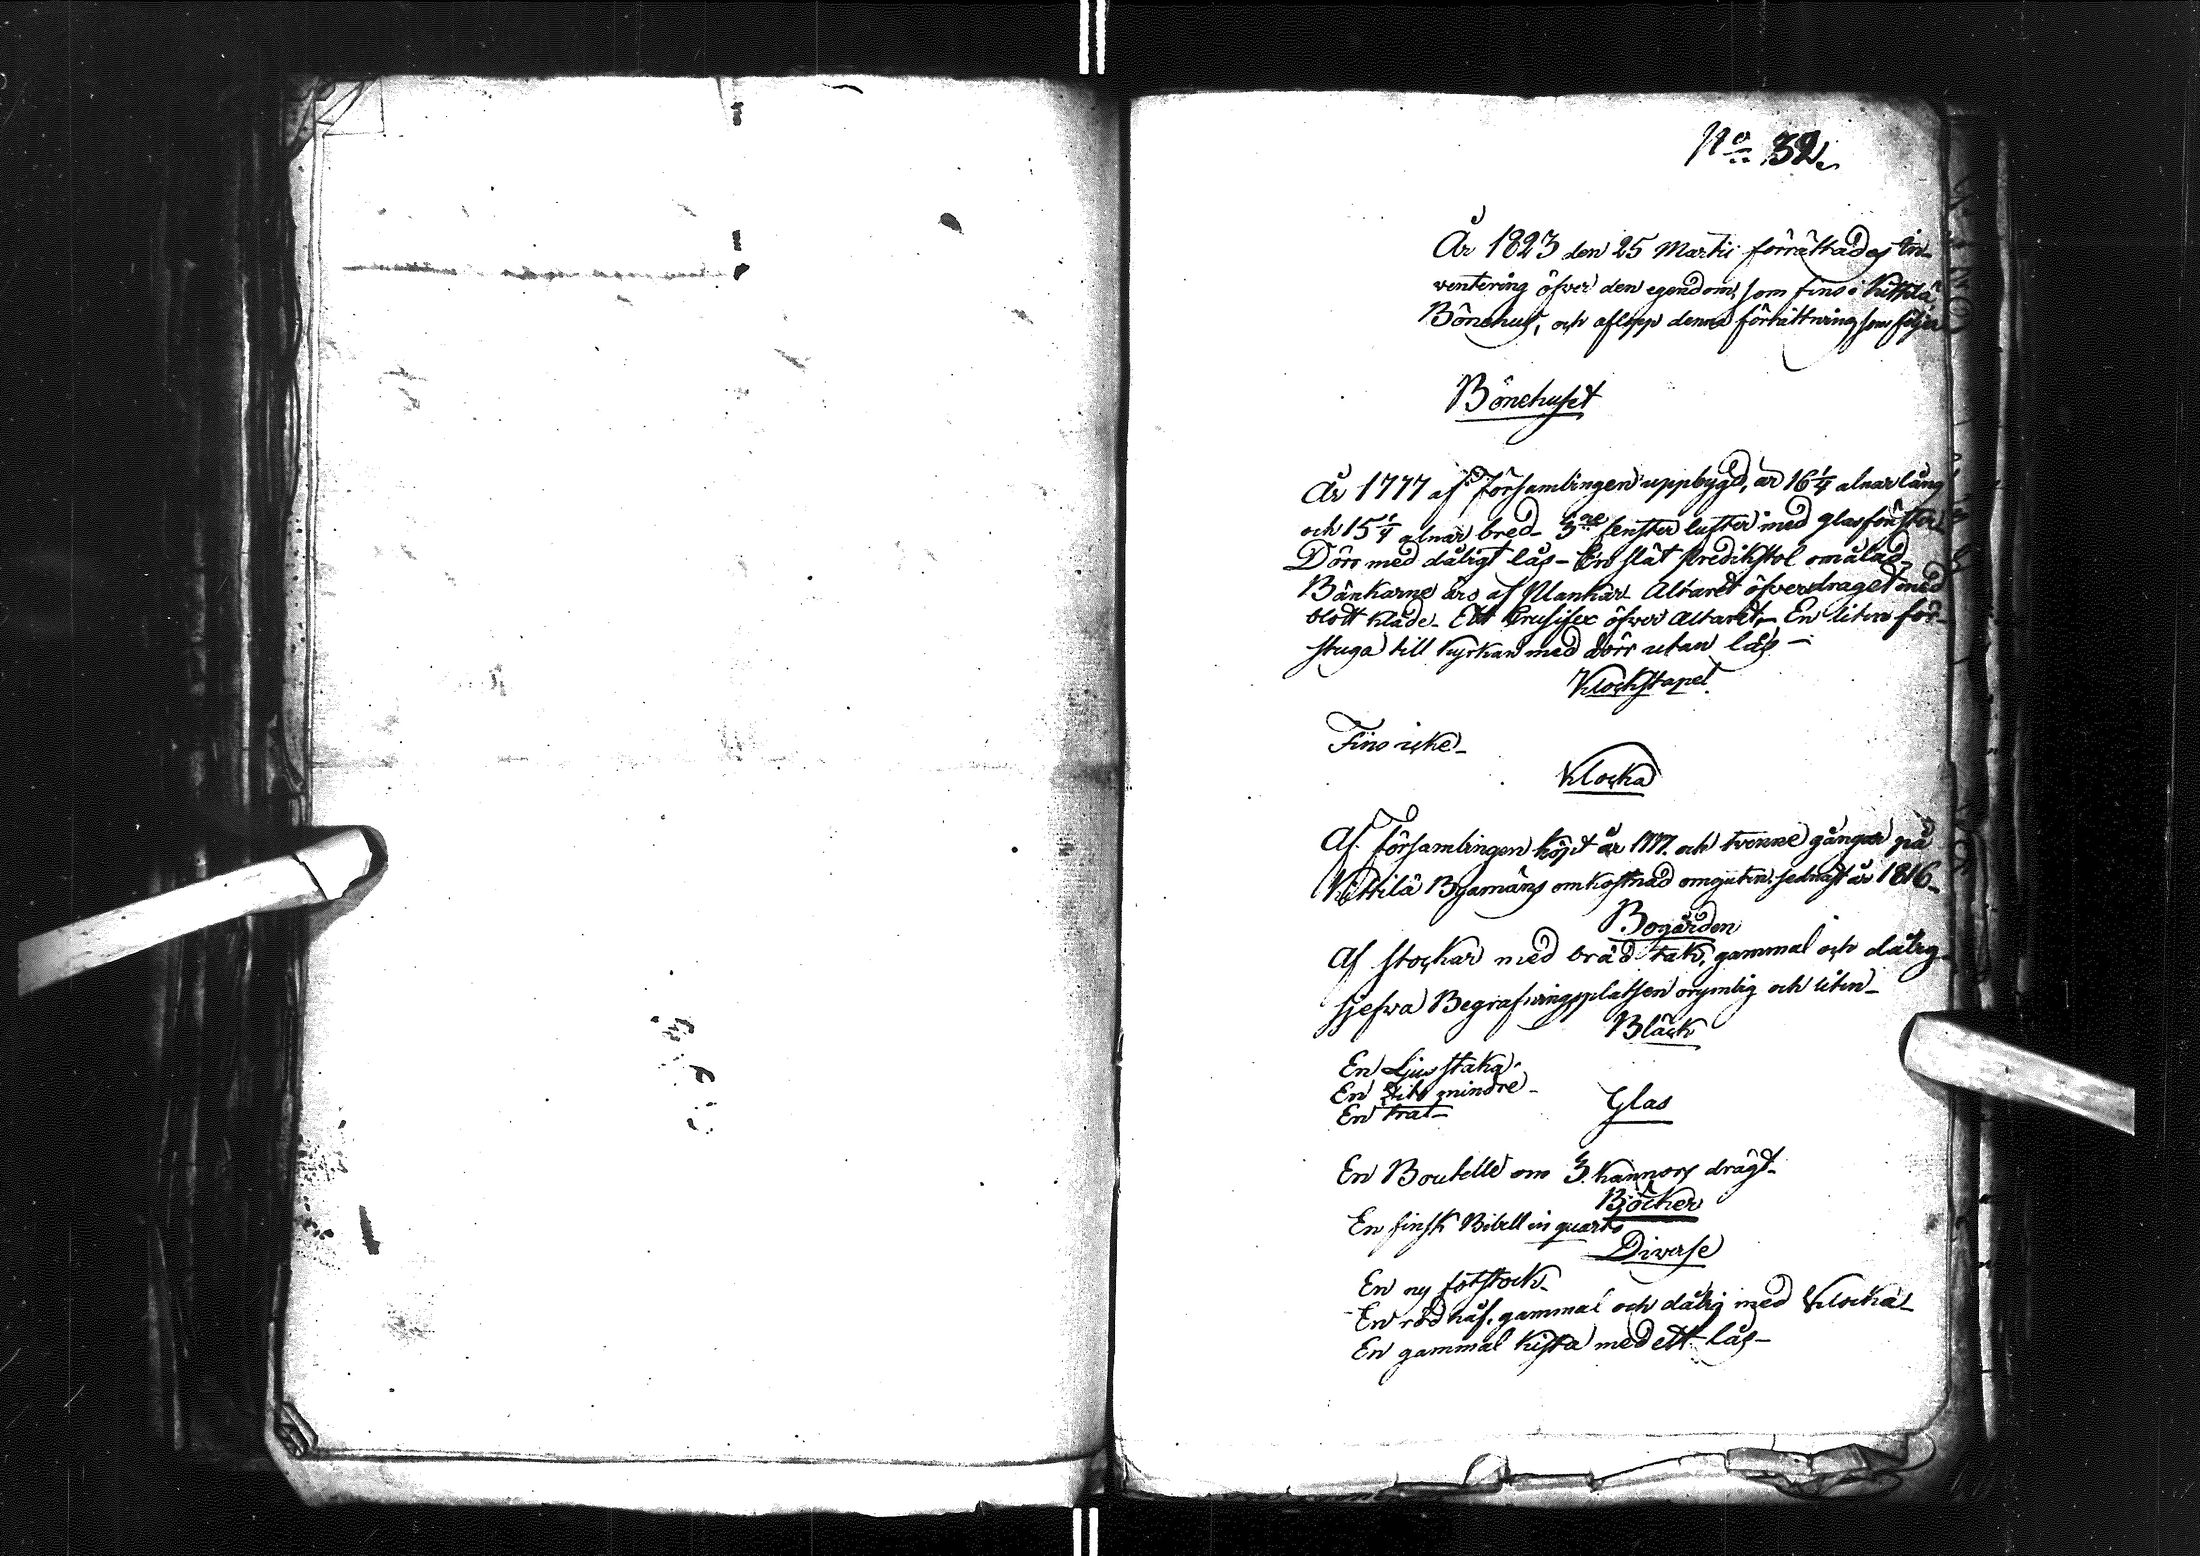 No 32.
År 1823 den 25 Martii förrättades in-
ventering öfver den egendom, som fins i Kittilä
Bönehus, och aflopp denna förrättning som följer
Bönehuset
År 1777 af Församlingen uppbygd, är 16 1/4 alnar lång
och 15 1/4 alnar bred - 3ne fenster lufter med glasfönster
Dörr med dåligt lås - En slät Predikstol omålad,
Bänkarne äro af Plankar. Altaret öfverdraget med
blått kläde - Ett Crusifix öfver Altaret - En liten för-
stuga till kyrkan med dörr utan lås -
Klockstapel.
Fins icke -
Klocka
Af Församlingen köpt år 1777. och tvenne gångor på
Kittilä Byamäns omkostnad omguten. sednast år 1816 -
Bogården
Af stockar med bräd tak, gammal och dålig
sjefva Begrafningsplatsen orymlig och liten -
Bläck
En Ljusstaka -
En dito mindre -
En trat -
Glas
En Boutelle om 3. kannors drägt -
Böcker
En finsk Bibell in quarto
Diverse
En ny fotstock -
En röd håf, gammal och dålig med Klocka -
En gammal kista med ett lås -